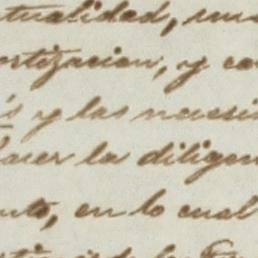 tualidad, una
ortizacion, y co
s y las necesi
hacer la diligen
nto, en lo cual